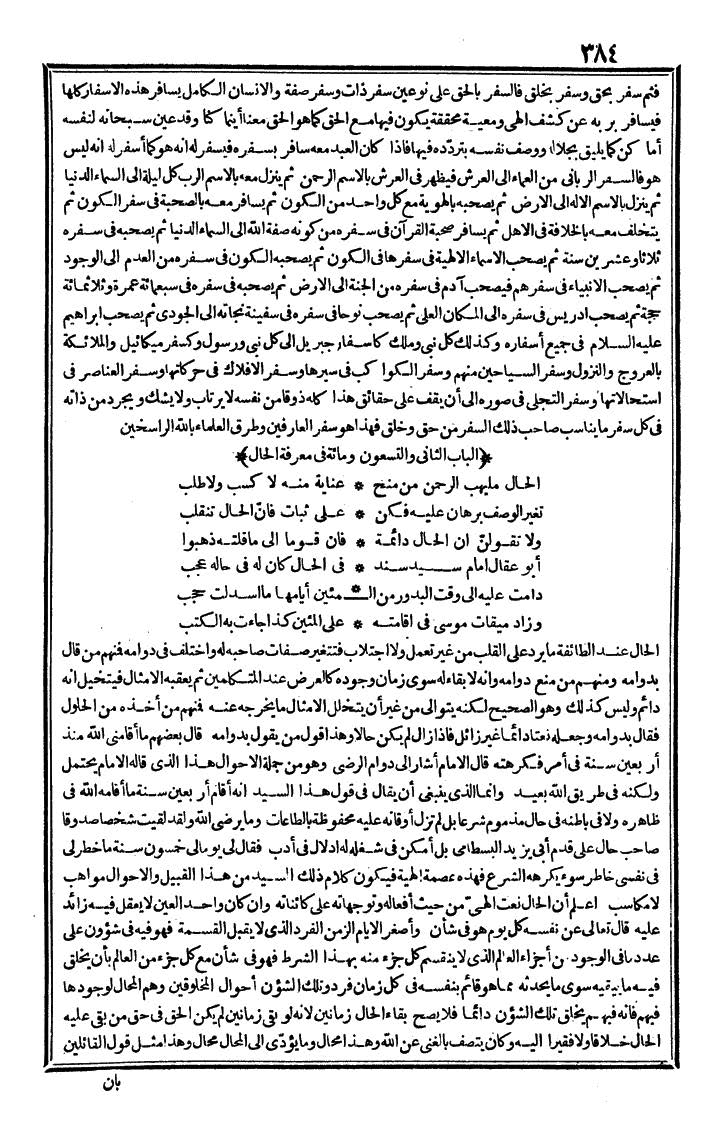 ٣٨٤
فثم سفر بحق وسفر بخلق فالسفر بالحق على نوعين سفر ذات وسفر صفة والانسان الكامل يسافر هذه الاسفار كلها
فيسافر بربه عن كشف الهى ومعية محققة يكون فيها مع الحق كما هو الحق معنا أينما كنا وقد عين سبحانه لنفسه
أما كن كما يليق بجلاله ووصف نفسه بتردّده فيها فاذا كان العبد معه سافر بسفره فيسفر له انه هو كما أسفر له انه ليس
هو فالسفر الربانى من العماء الى العرش فيظهر فى العرش بالاسم الرحمن ثم ينزل معه بالاسم الرب كل ليلة الى السماء الدنيا
ثم ينزل بالاسم الاله الى الارض ثم يصحبه بالهوية مع كل واحد من الكون ثم يسافر معه بالصحبة فى سفر الكون ثم
يتخلف معه بالخلافة فى الاهل ثم يسافر صحبة القرآن فى سفره من كونه صفة الله الى السماء الدنيا ثم يصحبه فى سفره
ثلاثا وعشرين سنة ثم يصحب الاسماء الالهية فى سفرها فى الكون ثم يصحبه الكون فى سفره من العدم الى الوجود
ثم يصحب الانبياء فى سفرهم فيصحب آدم فى سفره من الجنة الى الارض ثم يصحبه فى سفره فى سبعمائة عمرة وثلاثمائة
حجة ثم يصحب ادريس فى سفره الى المكان العلى ثم يصحب نوحا فى سفره فى سفينة نجاته الى الجودى ثم يصحب ابراهيم
عليه السلام فى جميع أسفاره وكذلك كل نبى وملك كاسفار جبريل الى كل نبى ورسول وكسفر ميكائيل والملائكة
بالعروج والنزول وسفر السياحين منهم وسفر الكواكب فى سيرها وسفر الافلاك فى حركاتها وسفر العناصر فى
استحالاتها وسفر التجلى فى صوره الى أن يقف على حقائق هذا كله ذوقا من نفسه لا يرتاب ولا يشك ويجرد من ذاته
فى كل سفر ما يناسب صاحب ذلك السفر من حق وخلق فهذا هو سفر العارفين وطرق العلماء بالله الراسخين
﴿الباب الثانى والتسعون ومائة فى معرفة الحال﴾
الحال ما يهب الرحمن من منح * عناية منه لا كسب ولا طلب
تغير الوصف برهان عليه فكن * على ثبات فان الحال تنقلب
ولا تقولنّ ان الحال دائمة * فان قوما الى ما قلته ذهبوا
أبو عقال امام سيد سند * فى الحال كان له فى حاله عجب
دامت عليه الى وقت البدور من الـ * ـمئين أيامها ما اسدلت حجب
وزاد ميقات موسى فى اقامته * على المئين كذا جاءت به الكتب
الحال عند الطائفة ما يرد على القلب من غير تعمل ولا اجتلاب فتتغير صفات صاحبه له واختلف فى دوامه فنهم من قال
بدوامه ومنهم من منع دوامه وانه لا بقاء له سوى زمان وجوده كالعرض عند المتكلمين ثم يعقبه الامثال فيتخيل انه
دائم وليس كذلك وهو الصحيح لكنه يتوالى من غير أن يتخلل الامثال ما يخرجه عنه فنهم من أخذه من الحلول
فقال بدوامه وجعله نعتا دائما غير زائل فاذا زال لم يكن حالا وهذا قول من يقول بدوامه قال بعضهم ما أقامنى الله منذ
أربعين سنة فى أمر فكرهته قال الامام أشار الى دوام الرضى وهو من جملة الاحوال هذا الذى قاله الامام يحتمل
ولكنه فى طريق الله بعيد وانما الذى ينبغى أن يقال فى قول هذا السيد انه أقام أربعين سنة ما أقامه الله فى
ظاهره ولا فى باطنه فى حال مذموم شرعا بل لم تزل أوقاته عليه محفوظة بالطاعات وما يرضى الله ولقد لقيت شخصا صدوقا
صاحب حال على قدم أبى يزيد البسطامى بل أمكن فى شغله له ادلال فى أدب فقال لى يوما لى خمسون سنة ما خطر لى
فى نفسى خاطر سوء يكرهه الشرع فهذه عصمة الهية فيكون كلام ذلك السيد من هذا القبيل والاحوال مواهب
لا مكاسب اعلم أن الحال نعت الهىّ من حيث أفعاله وتوجهاته على كائناته وان كان واحد العين لا يعقل فيه زائد
عليه قال تعالى عن نفسه كل يوم هو فى شأن وأصغر الايام الزمن الفرد الذى لا يقبل القسمة فهو فيه فى شؤون على
عدد ما فى الوجود من أجزاء العالم الذى لا ينقسم كل جزء منه بهذا الشرط فهو فى شأن مع كل جزء من العالم بأن يخلق
فيه ما يبقيه سوى ما يحدثه مما هو قائم بنفسه فى كل زمان فرد وتلك الشؤن أحوال المخلوقين وهم المحال لوجودها
فيهم فانه فيهم يخلق تلك الشؤن دائما فلا يصح بقاء الحال زمانين لانه لو بقى زمانين لم يكن الحق فى حق من بقى عليه
الحال خلاقا ولا فقيرا اليه وكان يتصف بالغنى عن الله وهذا محال وما يؤدّى الى المحال محال وهذا مثل قول القائلين
بان